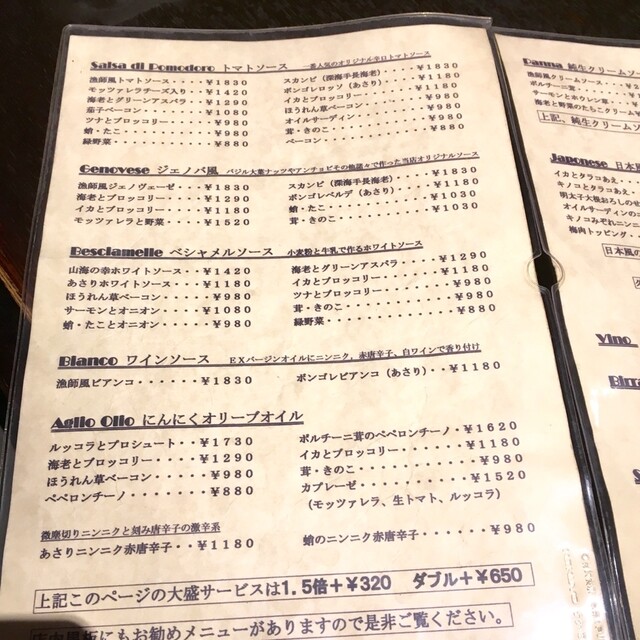 Salsa di Pomodoro トマトソース 一番人気のオリジナル辛口トマトソース
漁師風トマトソース・・・・¥1830
モッツァレラチーズ入り・・¥1420
海老とグリーンアスパラ・・¥1290
茄子ベーコン・・・・・・・¥1080
ツナとブロッコリー・・・・¥980
蛸・たこ・・・・・・・・・¥980
緑野菜・・・・・・・・・・¥880
スカンピ（深海手長海老）・・・・¥1830
ボンゴレロッソ（あさり）・・・・¥1180
イカとブロッコリー・・・・・・・¥1180
ほうれん草ベーコン・・・・・・・¥980
オイルサーディン・・・・・・・・¥980
茸・きのこ・・・・・・・・・・・¥980
ベーコン・・・・・・・・・・・・¥880
Genovese ジェノバ風 バジル大葉ナッツやアンチョビその他諸々で作った当店オリジナルソース
漁師風ジェノヴェーゼ・・・¥1830
海老とブロッコリー・・・・¥1290
イカとブロッコリー・・・・¥1180
モッツァレラと野菜・・・・¥1520
スカンピ（深海手長海老）・・・・¥1830
ボンゴレベルデ（あさり）・・・・¥1180
蛸・たこ・・・・・・・・・・・・¥1030
茸・きのこ・・・・・・・・・・・¥1030
Besciamelle ベシャメルソース 小麦粉と牛乳で作るホワイトソース
山海の幸ホワイトソース・・¥1420
あさりホワイトソース・・・¥1180
ほうれん草ベーコン・・・・¥980
サーモンとオニオン・・・・¥1080
蛸・たことオニオン・・・・¥980
海老とグリーンアスパラ・・・・・¥1290
イカとブロッコリー・・・・・・・¥1180
ツナとブロッコリー・・・・・・・¥980
茸・きのこ・・・・・・・・・・・¥980
緑野菜・・・・・・・・・・・・・¥880
Bianco ワインソース EXバージンオイルにニンニク，赤唐辛子，白ワインで香り付け
漁師風ビアンコ・・・・・・¥1830
ボンゴレビアンコ（あさり）・・・¥1180
Aglio Olio にんにくオリーブオイル
ルッコラとプロシュート・・¥1730
海老とブロッコリー・・・・¥1290
ほうれん草ベーコン・・・・¥980
ペペロンチーノ・・・・・・¥880
ポルチーニ茸のペペロンチーノ・・¥1620
イカとブロッコリー・・・・・・・¥1180
茸・きのこ・・・・・・・・・・・¥980
カプレーゼ・・・・・・・・・・・¥1520
（モッツァレラ、生トマト、ルッコラ）
微塵切りニンニクと刻み唐辛子の激辛系
あさりニンニク赤唐辛子・・¥1180
蛸のニンニク赤唐辛子・・・・・・¥980
上記このページの大盛サービスは1.5倍＋¥320 ダブル＋¥650
にもお勧めメニューがありますので是非ご覧ください。
Panna 純生クリームソー
漁師風クリームソース・・・
ポルチーニ茸・・・・・
サーモンとホウレン草・・
海老と野菜のたらこクリーム
上記、純生クリーム
Japonese 日本風
イカとタラコあえ・・・
キノコとタラコあえ・・
明太子大根おろしのせ
オイルサーディンの
キノコみぞれニンニ
梅肉トッピング・・・
日本風の
Vino
Birra